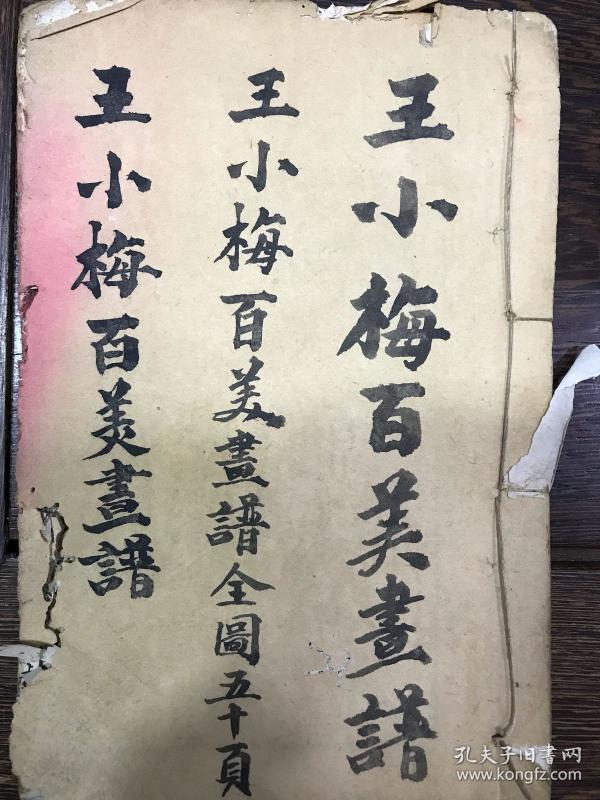 王小梅百美畫譜
王小梅百美畫譜全圖五十頁
王小梅百美畫譜
孔夫子旧書网
www.kongfz.com